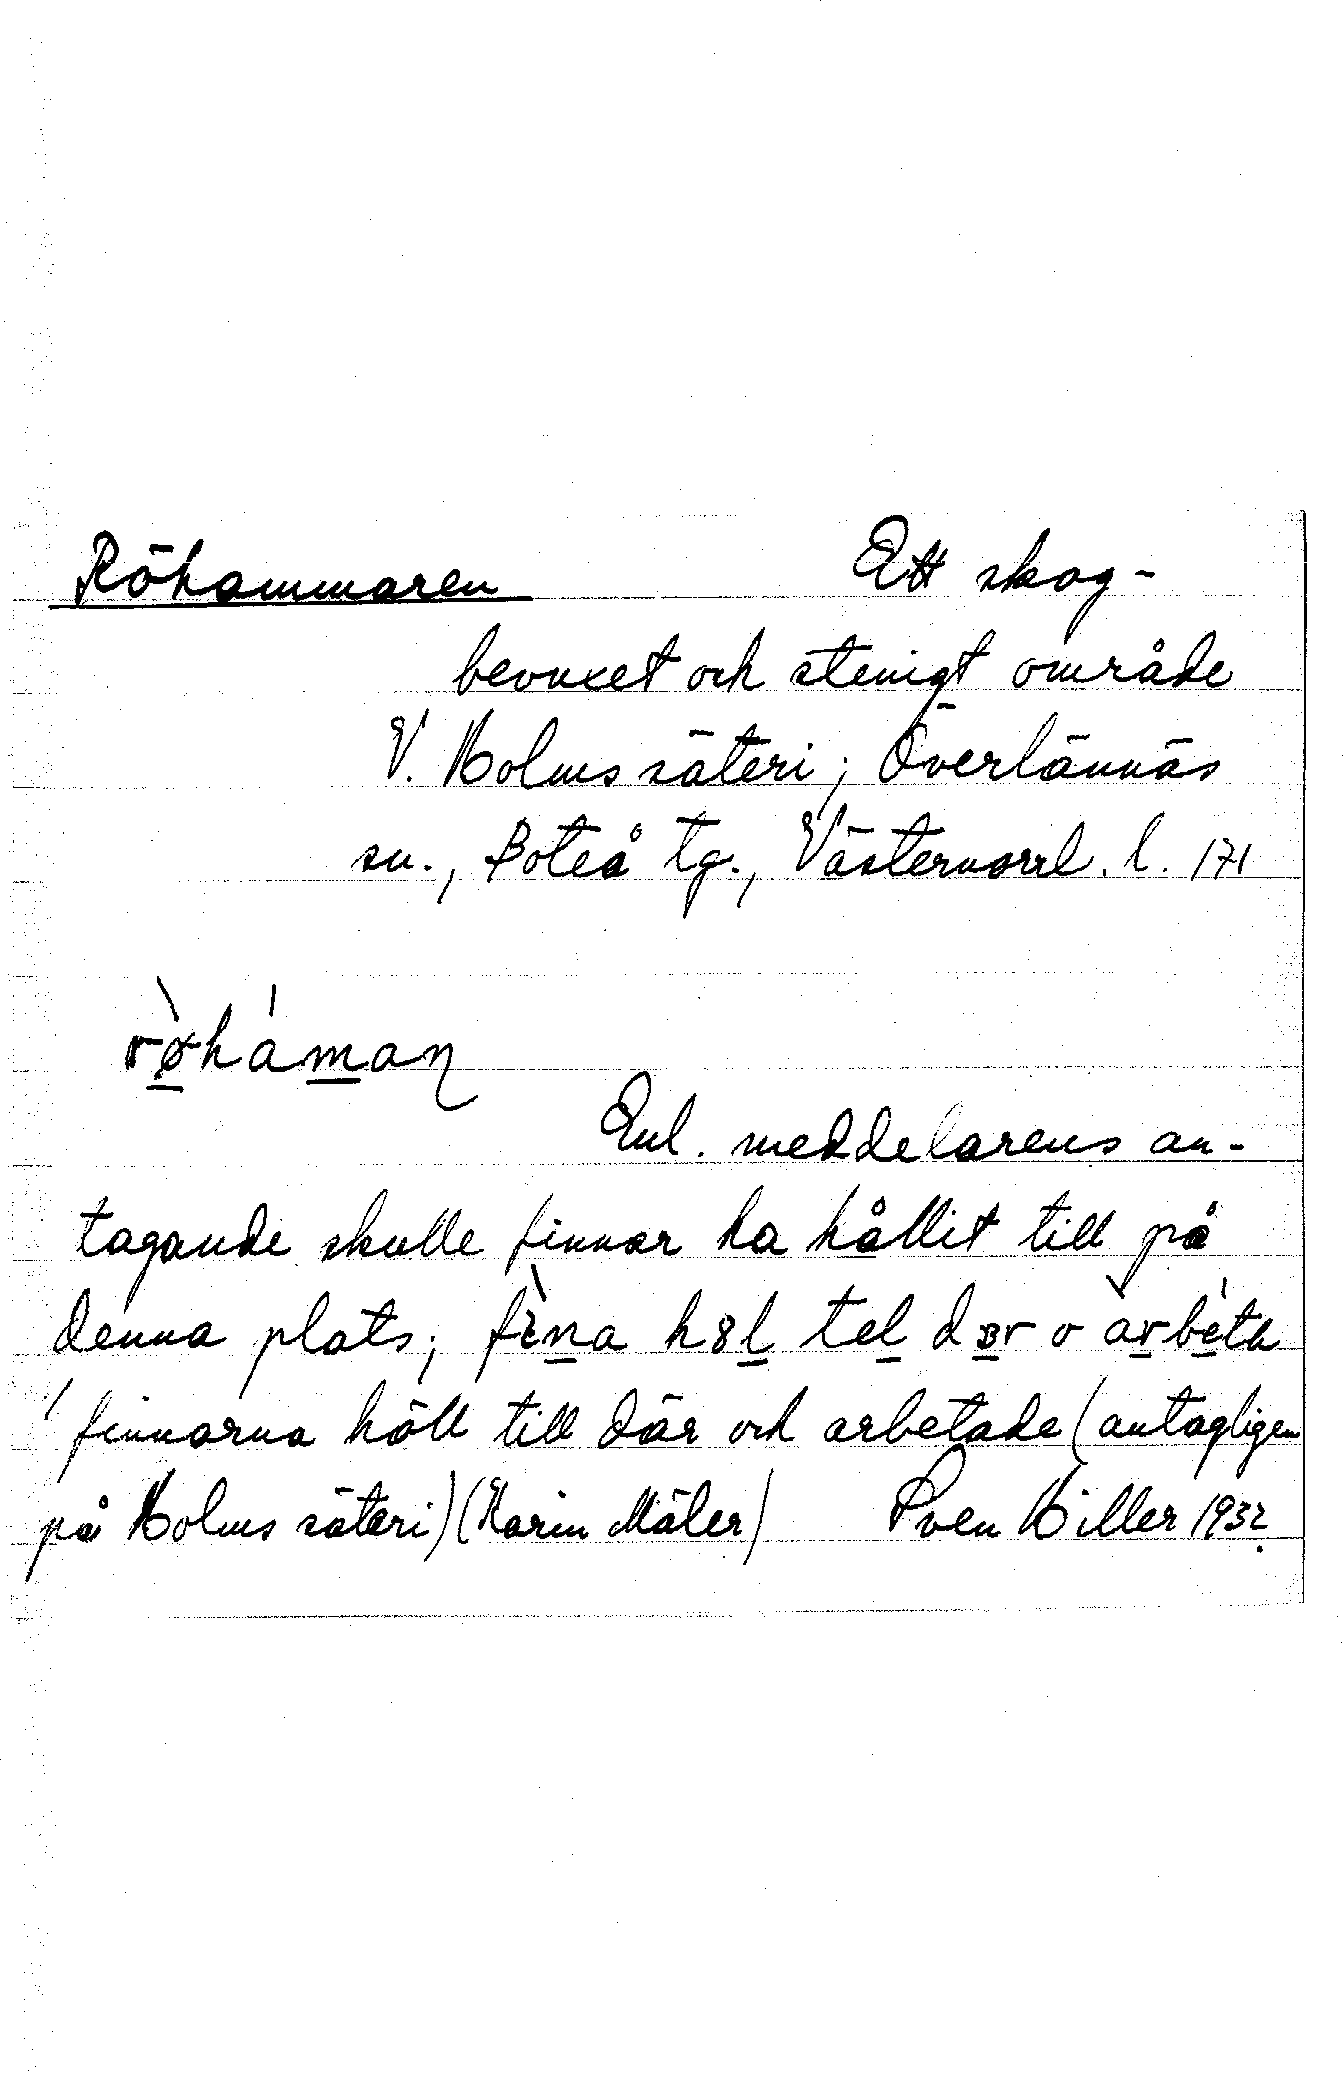 Röhammaren Ett skog-
bevuxet och stenigt område
V. Holms säteri; Överlännäs
sn., Boteå tg., Västernorrl. l. 171
rø̀háman
Enl. meddelarens an-
tagande skulle finnar ha hållit till på
denna plats; fìna h8l tel dɜr o àrbéta
'finnarna höll till där och arbetade (antagligen
på Holms säteri) (Karin Mäler) Sven Hiller 1932.